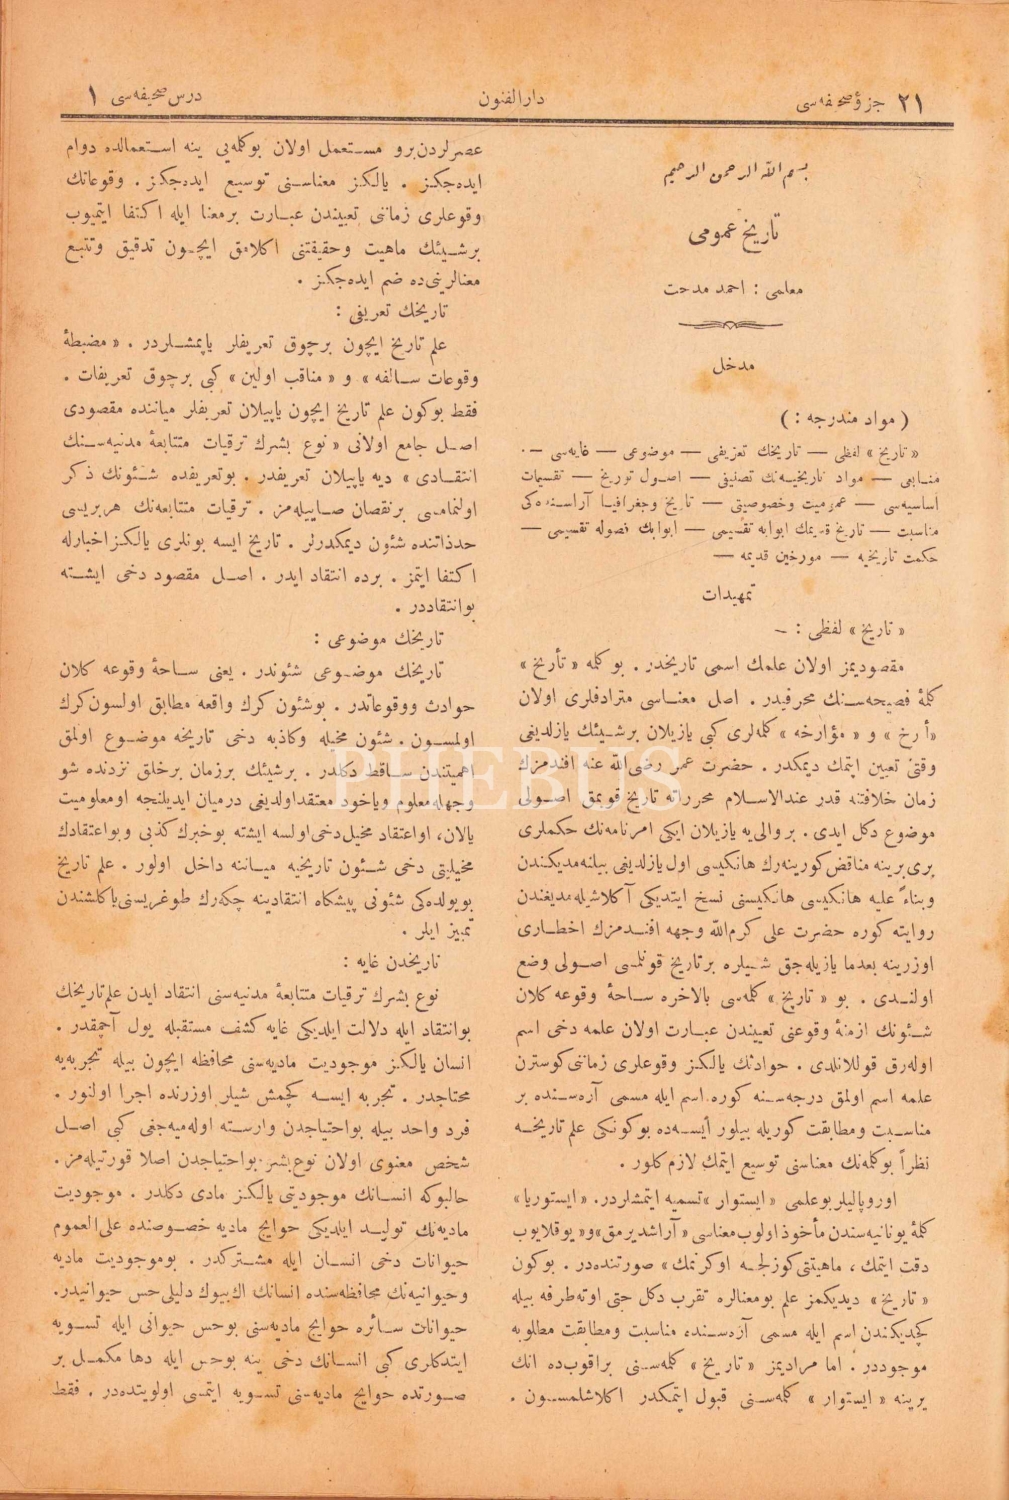 ٢١ جزؤ صحيفه‌سى
دار الفنون
درس صحيفه‌سى ١
بسم الله الرحمن الرحيم
تاريخ عمومى
معلمى : احمد مدحت
مدخل
( مواد مندرجه : )
« تاريخ » لفظى — تاريخك تعريفى — موضوعى — غايه‌سى —
منابعى — مواد تاريخيه‌نك تصنيفى — اصول توريخ — تقسيمات
اساسيه‌سى — عموميت وخصوصيتى — تاريخ وجغرافيا آراسنده‌كى
مناسبت — تاريخ قديمك ابوابه تقسيمى — ابوابك فصوله تقسيمى —
حكمت تاريخيه — مورخين قديمه —
تمهيدات
« تاريخ » لفظى : —
مقصوديمز اولان علمك اسمى تاريخدر . بو كلمه « تأريخ »
كلمۀ فصيحه‌سنك محرفيدر . اصل معناسى مترادفلرى اولان
« أرخ » و « مؤارخه » كلمه‌لرى كبى يازيلان برشيئك يازلديغى
وقتى تعيين ايتمك ديمكدر . حضرت عمر رضى الله عنه افندمزك
زمان خلافتنه قدر عندالاسلام محرراته تاريخ قويمق اصولى
موضوع دكل ايدى . بر والى‌يه يازيلان ايكى امرنامه‌نك حكملرى
برى برينه مناقض كورينه‌رك هانكيسى اول يازلديغى بيلنه‌مديكندن
وبناءً عليه هانكيسى هانكيسنى نسخ ايتديكى آكلاشيله‌مديغندن
روايته كوره حضرت على كرم الله وجهه افندمزك اخطارى
اوزرينه بعدما يازيله‌جق شيلره برتاريخ قونلمسى اصولى وضع
اولندى . بو « تاريخ » كلمه‌سى بالاخره ساحۀ وقوعه كلان
شئونك ازمنۀ وقوعنى تعييندن عبارت اولان علمه دخى اسم
اوله‌رق قوللانلدى . حوادثك يالكز وقوعلرى زماننى كوسترن
علمه اسم اولمق درجه‌سنه كوره اسم ايله مسمى آره‌سنده بر
مناسبت ومطابقت كوريله بيلور ايسه‌ده بوكونكى علم تاريخه
نظراً بوكلمه‌نك معناسنى توسيع ايتمك لازم كلور .
اوروپاليلر بوعلمى « ايستوار » تسميه ايتمشلردر. « ايستوريا »
كلمۀ يونانيه‌سندن مأخوذ اولوب معناسى « آراشديرمق » و « يوقلايوب
دقت ايتمك ، ماهيتنى كوزلجه اوكرنمك » صورتنده‌در . بوكون
« تاريخ » ديديكمز علم بومعنالره تقرب دكل حتى اوته طرفه بيله
كچديكندن اسم ايله مسمى آره‌سنده مناسبت ومطابقت مطلوبه
موجوددر . اما مراديمز « تاريخ » كلمه‌سنى براقوب‌ده انك
يرينه « ايستوار » كلمه‌سنى قبول ايتمكدر اكلاشلمسون .
عصرلردن برو مستعمل اولان بوكلمه‌يى ينه استعمالده دوام
ايده‌جكز . يالكز معناسنى توسيع ايده‌جكز . وقوعاتك
وقوعلرى زماننى تعييندن عبارت برمعنا ايله اكتفا ايتميوب
برشيئك ماهيت وحقيقتنى اكلامق ايچون تدقيق وتتبع
معنالرينى‌ده ضم ايده‌جكز .
تاريخك تعريفى :
علم تاريخ ايچون برچوق تعريفلر ياپمشلردر . « مضبطۀ
وقوعات سالفه » و « مناقب اولين » كبى برچوق تعريفات .
فقط بوكون علم تاريخ ايچون ياپيلان تعريفلر مياننده مقصودى
اصل جامع اولانى « نوع بشرك ترقيات متتابعۀ مدنيه‌سنك
انتقادى » ديه ياپيلان تعريفدر . بوتعريفده شئونك ذكر
اولنمامسى برنقصان صاييله‌مز . ترقيات متتابعه‌نك هربريسى
حدذاتنده شئون ديمكدرلر . تاريخ ايسه بونلرى يالكز اخبارله
اكتفا ايتمز . برده انتقاد ايدر . اصل مقصود دخى ايشته
بوانتقاددر .
تاريخك موضوعى :
تاريخك موضوعى شئوندر . يعنى ساحۀ وقوعه كلان
حوادث ووقوعاتدر . بوشئون كرك واقعه مطابق اولسون كرك
اولمسون . شئون مخيله وكاذبه دخى تاريخه موضوع اولمق
اهميتندن ساقط دكلدر . برشيئك برزمان برخلق نزدنده شو
وجهله معلوم وياخود معتقد اولديغى درميان ايديلنجه اومعلوميت
يالان، اواعتقاد مخيل دخى اولسه ايشته بوخبرك كذبى وبواعتقادك
مخيليتى دخى شئون تاريخيه مياننه داخل اولور . علم تاريخ
بويولده‌كى شئونى پيشكاه انتقادينه چكه‌رك طوغريسنى ياكلشندن
تمييز ايلر .
تاريخدن غايه :
نوع بشرك ترقيات متتابعۀ مدنيه‌سنى انتقاد ايدن علم تاريخك
بوانتقاد ايله دلالت ايلديكى غايه كشف مستقبله يول آچمقدر .
انسان يالكز موجوديت ماديه‌سنى محافظه ايچون بيله تجربه‌يه
محتاجدر . تجربه ايسه كچمش شيلر اوزرنده اجرا اولنور .
فرد واحد بيله بواحتياجدن وارسته اوله‌ميه‌جغى كبى اصل
شخص معنوى اولان نوع بشر بواحتياجدن اصلا قورتيله‌مز .
حالبوكه انسانك موجوديتى يالكز مادى دكلدر . موجوديت
ماديه‌نك توليد ايلديكى حوايج ماديه خصوصنده على‌العموم
حيوانات دخى انسان ايله مشتركدر . بوموجوديت ماديه
وحيوانيه‌نك محافظه‌سنده انسانك اك بيوك دليلى حس حيوانيدر.
حيوانات سائره حوايج ماديه‌سنى بوحس حيوانى ايله تسويه
ايتدكلرى كبى انسانك دخى ينه بوحس ايله دها مكمل بر
صورتده حوايج ماديه‌سنى تسويه ايتمسى اولويتده‌در . فقط
PHEBUS